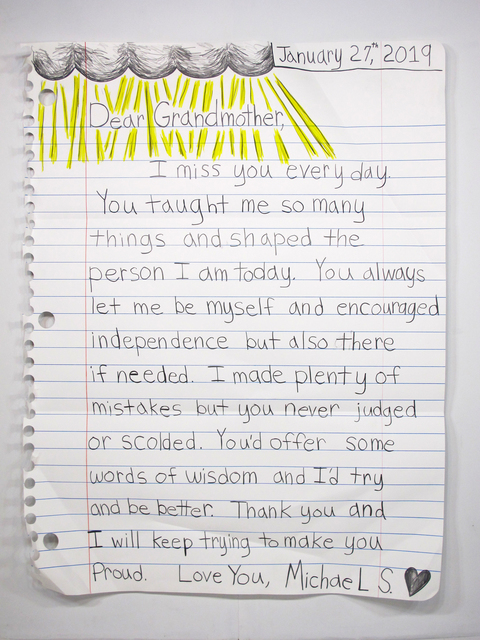 January 27,th 2019
Dear Grandmother,
I miss you every day.
You taught me so many
things and shaped the
person I am today. You always
let me be myself and encouraged
independence but also there
if needed. I made plenty of
mistakes but you never judged
or scolded. You'd offer some
words of wisdom and I'd try
and be better. Thank you and
I will keep trying to make you
Proud. Love You, Michael S.